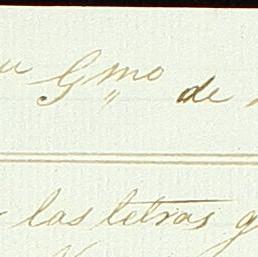 Gmo de
las letras